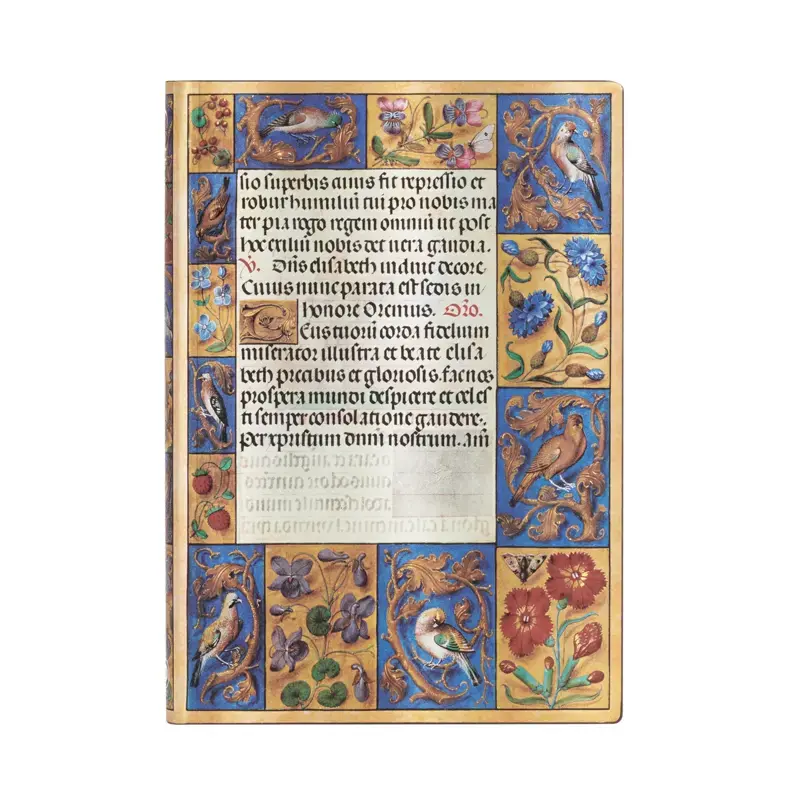 sio superbis cuius fit repressio et
robur humiliū cui pro nobis ma
ter pia rogo regem omniū ut post
hoc exiliū nobis det uera gaudia.
℣. Dn̄s elisabeth induit decore
Cuius nunc parata est sedis in
honore Oremus. Or̄o.
Eus tuorū corda fidelium
miserator illustra et beate elisa
beth precibus et gloriosis. fac nos
prospera mundi despicere et celes
ti semper consolatione gaudere.
Per xpristum dnm̄ nostrum. am̄